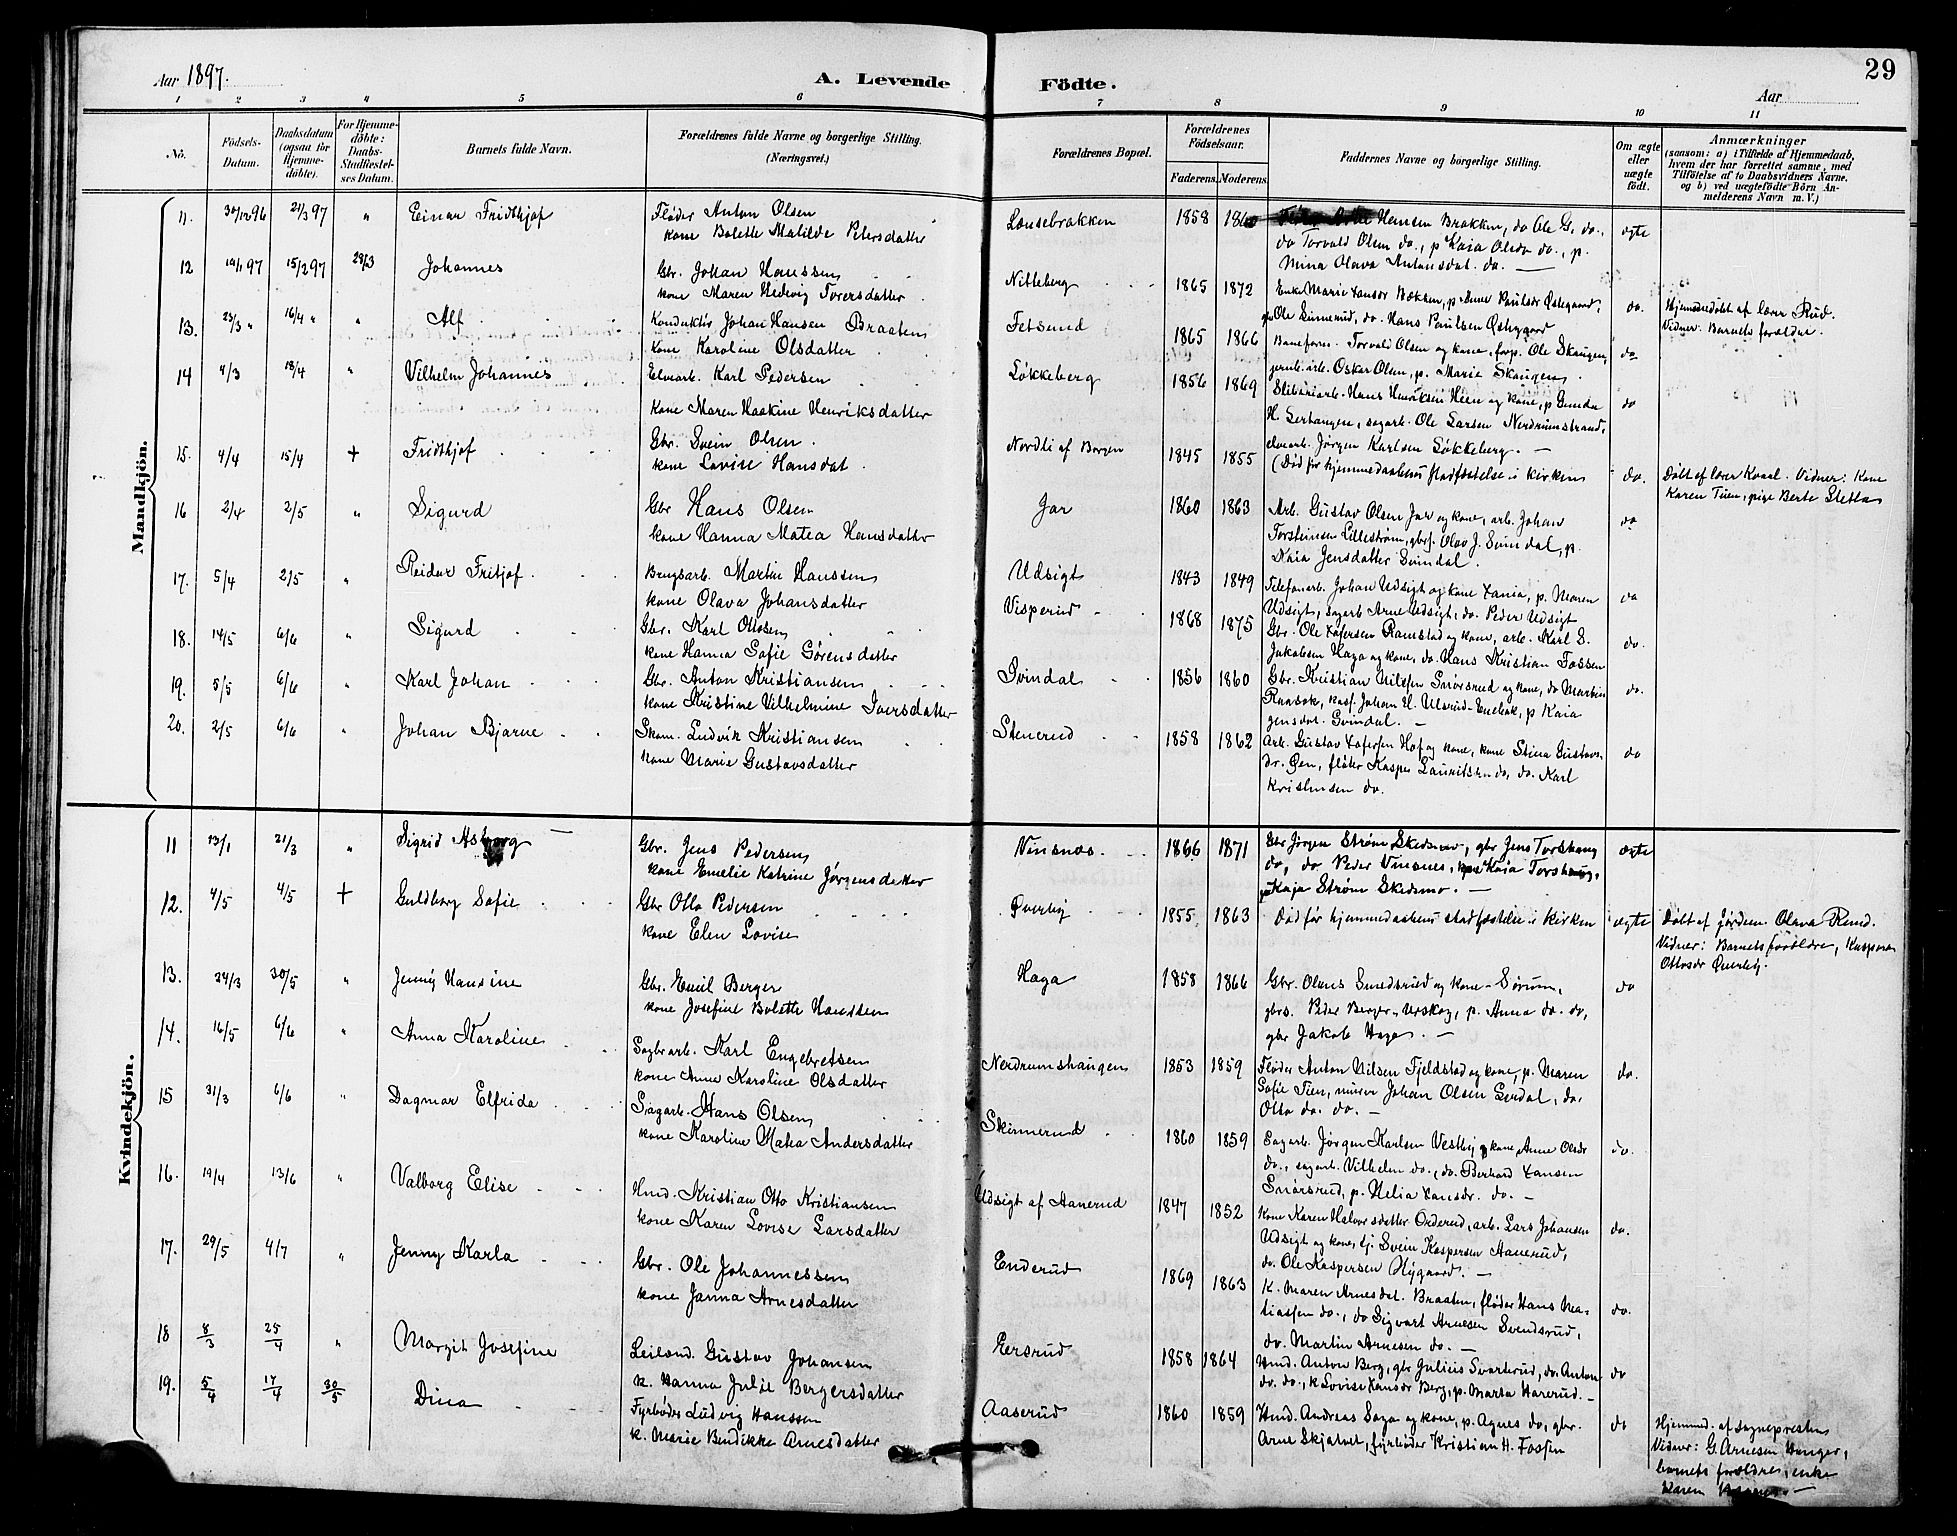 29
Aar 1897.
A. Levende Födte.
Aar
1 2 3 4 5 6 7 8 9 10 11
No.
Födsels-Datum.
Daabsdatum (ogsaa for Hjemme-döbte).
For Hjemme-döbte: Daabs-Stadfæstel-ses Datum.
Barnets fulde Navn.
Forældrenes fulde Navne og borgerlige Stilling. (Næringsvei.)
Forældrenes Bopæl.
Forældrenes Födselsaar.
Faderens. Moderens.
Faddernes Navne og borgerlige Stilling.
Om ægte eller uægte födt.
Anmærkninger
(saasom: a) i Tilfælde af Hjemmedaab,
hvem der har forrettet samme, med
Tilföielse af to Daabsvidners Navne.
og b) ved uægtefödte Börn An-
melderens Navn m. V.)
Mandkjön.
11. 30/12 96 21/3 97 " Einar Fridthjof
Fløder Anton Olsen
kone Bolette Matilde Petersdatter
Lænsebrakken 1858 1860
Hansen Brakken, do Ole G. do.,
do Torvald Olsen do., p Kaia Olsdr do., p.
Mina Olava Antonsdat. do. —
ægte
12 19/1 97 15/2 97 28/3 Johannes
Gbr. Johan Hanssen
kone Maren Hedvig Torersdatter
Nitteberg 1865 1872
Enke Marie Hansdr Bæksen, p. Anne Paulsdr Østegaard,
Ole Linnerud, do. Hans Paulsen Østygaard
do. Hjemmedøbt af lærer Rud.
Vidner: Barnets forældre.
13. 23/3 " 16/4 " " Alf
Konduktør Johan Hansen Braaten
kone Karoline Olsdatter
Fetsund 1865 1866
Baneform. Torvald Olsen og kone, forp. Ole Skaugen,
jernb.arb. Oskar Olsen, p. Marie Skaugen.
do
14 4/3 18/4 " Vilhelm Johannes
Elvearb. Karl Pedersen
kone Maren Haakine Henriksdatter
Løkkeberg 1856 1869
Sliberiarb. Hans Henriksen Heen og kone, p Gunda
H. Lerhaugen, sagarb. Ole Larsen Nerdrumstrand,
elvearb. Jørgen Karlsen Løkkeberg. —
do
15. 4/4 15/4 + Fridthjof
Gbr. Svein Olsen.
kone Lovise Hansdat.
Nordli af Borgen 1845 1855
(Død før hjemmedaabens stadfæstelse i kirken
do. Døbt af lærer Kvaal. Vidner: Kone
Karen Tuen, pige Berte Sletta
16 2/4 2/5 " Sigurd
Gbr Hans Olsen
kone Hanna Matea Hansdatter
Jar 1860 1863
Arb. Gustav Olsen Jar og kone, arb. Johan
Torsteinsen Lillestrøm, gbrs. Olav J. Svindal, p.
Maia Jensdatter Svindal.
do
17. 5/4 2/5 " Reidar Fritjof
Brugsarb. Martin Hanssen
kone Olava Johansdatter
Udsigt 1843 1849
Telefonarb. Johan Udsigt og kone Hania, p. Maren
Udsigt, sagarb Arne Udsigt, do. Peder Udsigt
do
18. 14/5 6/6 " Sigurd
Gbr. Karl Ottosen
kone Hanna Sofie Sørensdatter
Visperud 1868 1875
Gbr. Ole Tofersen Ramstad og kone, arb. Karl S.
Jakobsen Haga og kone, do. Hans Kristian Fossen
do.
19. 5/5 6/6 " Karl Johan
Gbr. Anton Kristiansen
kone Kristine Vilhelmine Iversdatter
Svindal 1856 1860
Gbr. Kristian Nilssen Snørsrud og kone, do Martin
Raasok, kusf. Johan H. Ulsrud-Enebak, p Kaia
Jensdat. Svindal. —
do.
20. 2/5 6/6 " Johan Bjarne
Skom. Ludvik Kristiansen
kone Marie Gustavsdatter
Stenerud 1858 1862
Arb. Gustav Tofersen Hof og kone, kone Stina Gustavs-
dr. Øen, fløter Kasper Lauritsen do, do. Karl
Kristensen do.
do
Kvindekjön.
11 13/1 21/3 " Sigrid Asborg —
Gbr. Jens Pedersen
kone Emelie Katrine Jørgensdatter
Vinsnes. 1866 1871
Gbr Jørgen Strøm Skedsmo, gbr Jens Torshaug
do, do Peder Vinsnes, Kaia Torshaug,
Kaja Strøm Skedsmo. —
ægte
12. 4/5 4/5 + Guldborg Sofie
Gbr Otto Pedersen
kone Elen Lovise
Øverby 1855 1863
Død før hjemmedaabens stadfæstelse i kirken
ægte Døbt af jordem. Olava Rud.
Vidner: Barnets forældre, Kaspara
Ottosdr Øverby.
13. 24/3 30/5 " Jenny Hansine
Gbr. Emil Berger
kone Josefine Bolette Hanssen
Haga 1858 1866
Gbr. Olaus Smedsrud og kone - Sørum,
gbrs. Peder Berger - Urskog, p. Anna do. do,
gbr Jakob Haga. —
do
14. 16/5 6/6 " Anna Karoline
Sagbr.arb. Karl Engebretsen
kone Anne Karoline Olsdatter
Nerdrumshaugen 1853 1859
Fløder Anton Nilsen Fjeldstad og kone, p. Maren
Sofie Tien, murer Johan Olsen Lerdal, do.
Otto do. do. —
do.
15 31/3 6/6 " Dagmar Elfrida
Sagarb. Hans Olsen
kone Karoline Matea Andersdatter
Skinnerud 1860 1859
Sagarb. Jørgen Karlsen Vestby og kone, Anne Olsdr
do., sagarb. Vilhelm do., do. Berhard Hansen
Snørsrud, p. Helia Hansdr. do. —
do.
16. 19/4 13/6 " Valborg Elise
Hmd. Kristian Otto Kristiansen
kone Karen Lovise Larsdatter
Udsigt af Hanerud 1847 1852
Kone Karen Halvorsdatter Orderud, arb. Lars Johansen
Udsigt og kone, tj. Svein Kaspersen Hanerud,
do. Ole Kaspersen Nygaard. —
do.
17. 29/5 4/7 " Jenny Karla
Gbr. Ole Johannessen
kone Janna Arnesdatter
Enderud 1869 1863
K. Maren Arnesdat. Braaten, fløder Hans Ma-
tiassen do., do Sigvart Arnesen Svendsrud,
do. Martin Arnesen do. —
do.
18 8/3 25/4 " Margit Josefine
Leilænd. Gustav Johansen
k. Hanna Julie Bergersdatter
Eersrud 1858 1864
Hmd. Anton Berg, gbr Julius Svarterud, do. Anton
do. do., k Lovise Hansdr Berg, p. Marta Harerud. —
do
19. 5/4 17/4 30/5 Dina
Fyrbøder Ludvig Hanssen
k. Marie Bendikke Arnesdatter
Aaserud 1860 1859
Hmd. Andreas Saga og kone, p. Agnes do, gbr.
Arne Skjatvet, fyrbøder Kristian H. Fossen
do Hjemmed. af sognepresten
Vidner: G. Arnesen Hunger,
barnets forældre, enke
Karen —